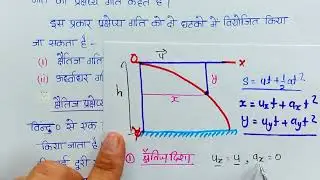 गति को प्रक्षेप्य गति कहते हैं।
इस प्रकार प्रक्षेप्य गति को दो घटको में वियोजित किया
जा सकता है -
(i) क्षैतिज गति
(ii)
क्षैतिज प्रक्षेप्य
बिन्दु O से एक
किया जाता है
दूरी
O u x
y
h
x
S = ut + ½at²
x = uₓt + aₓt²
y = u_yt + a_yt²
① क्षैतिज दिशा uₓ = u, aₓ = 0